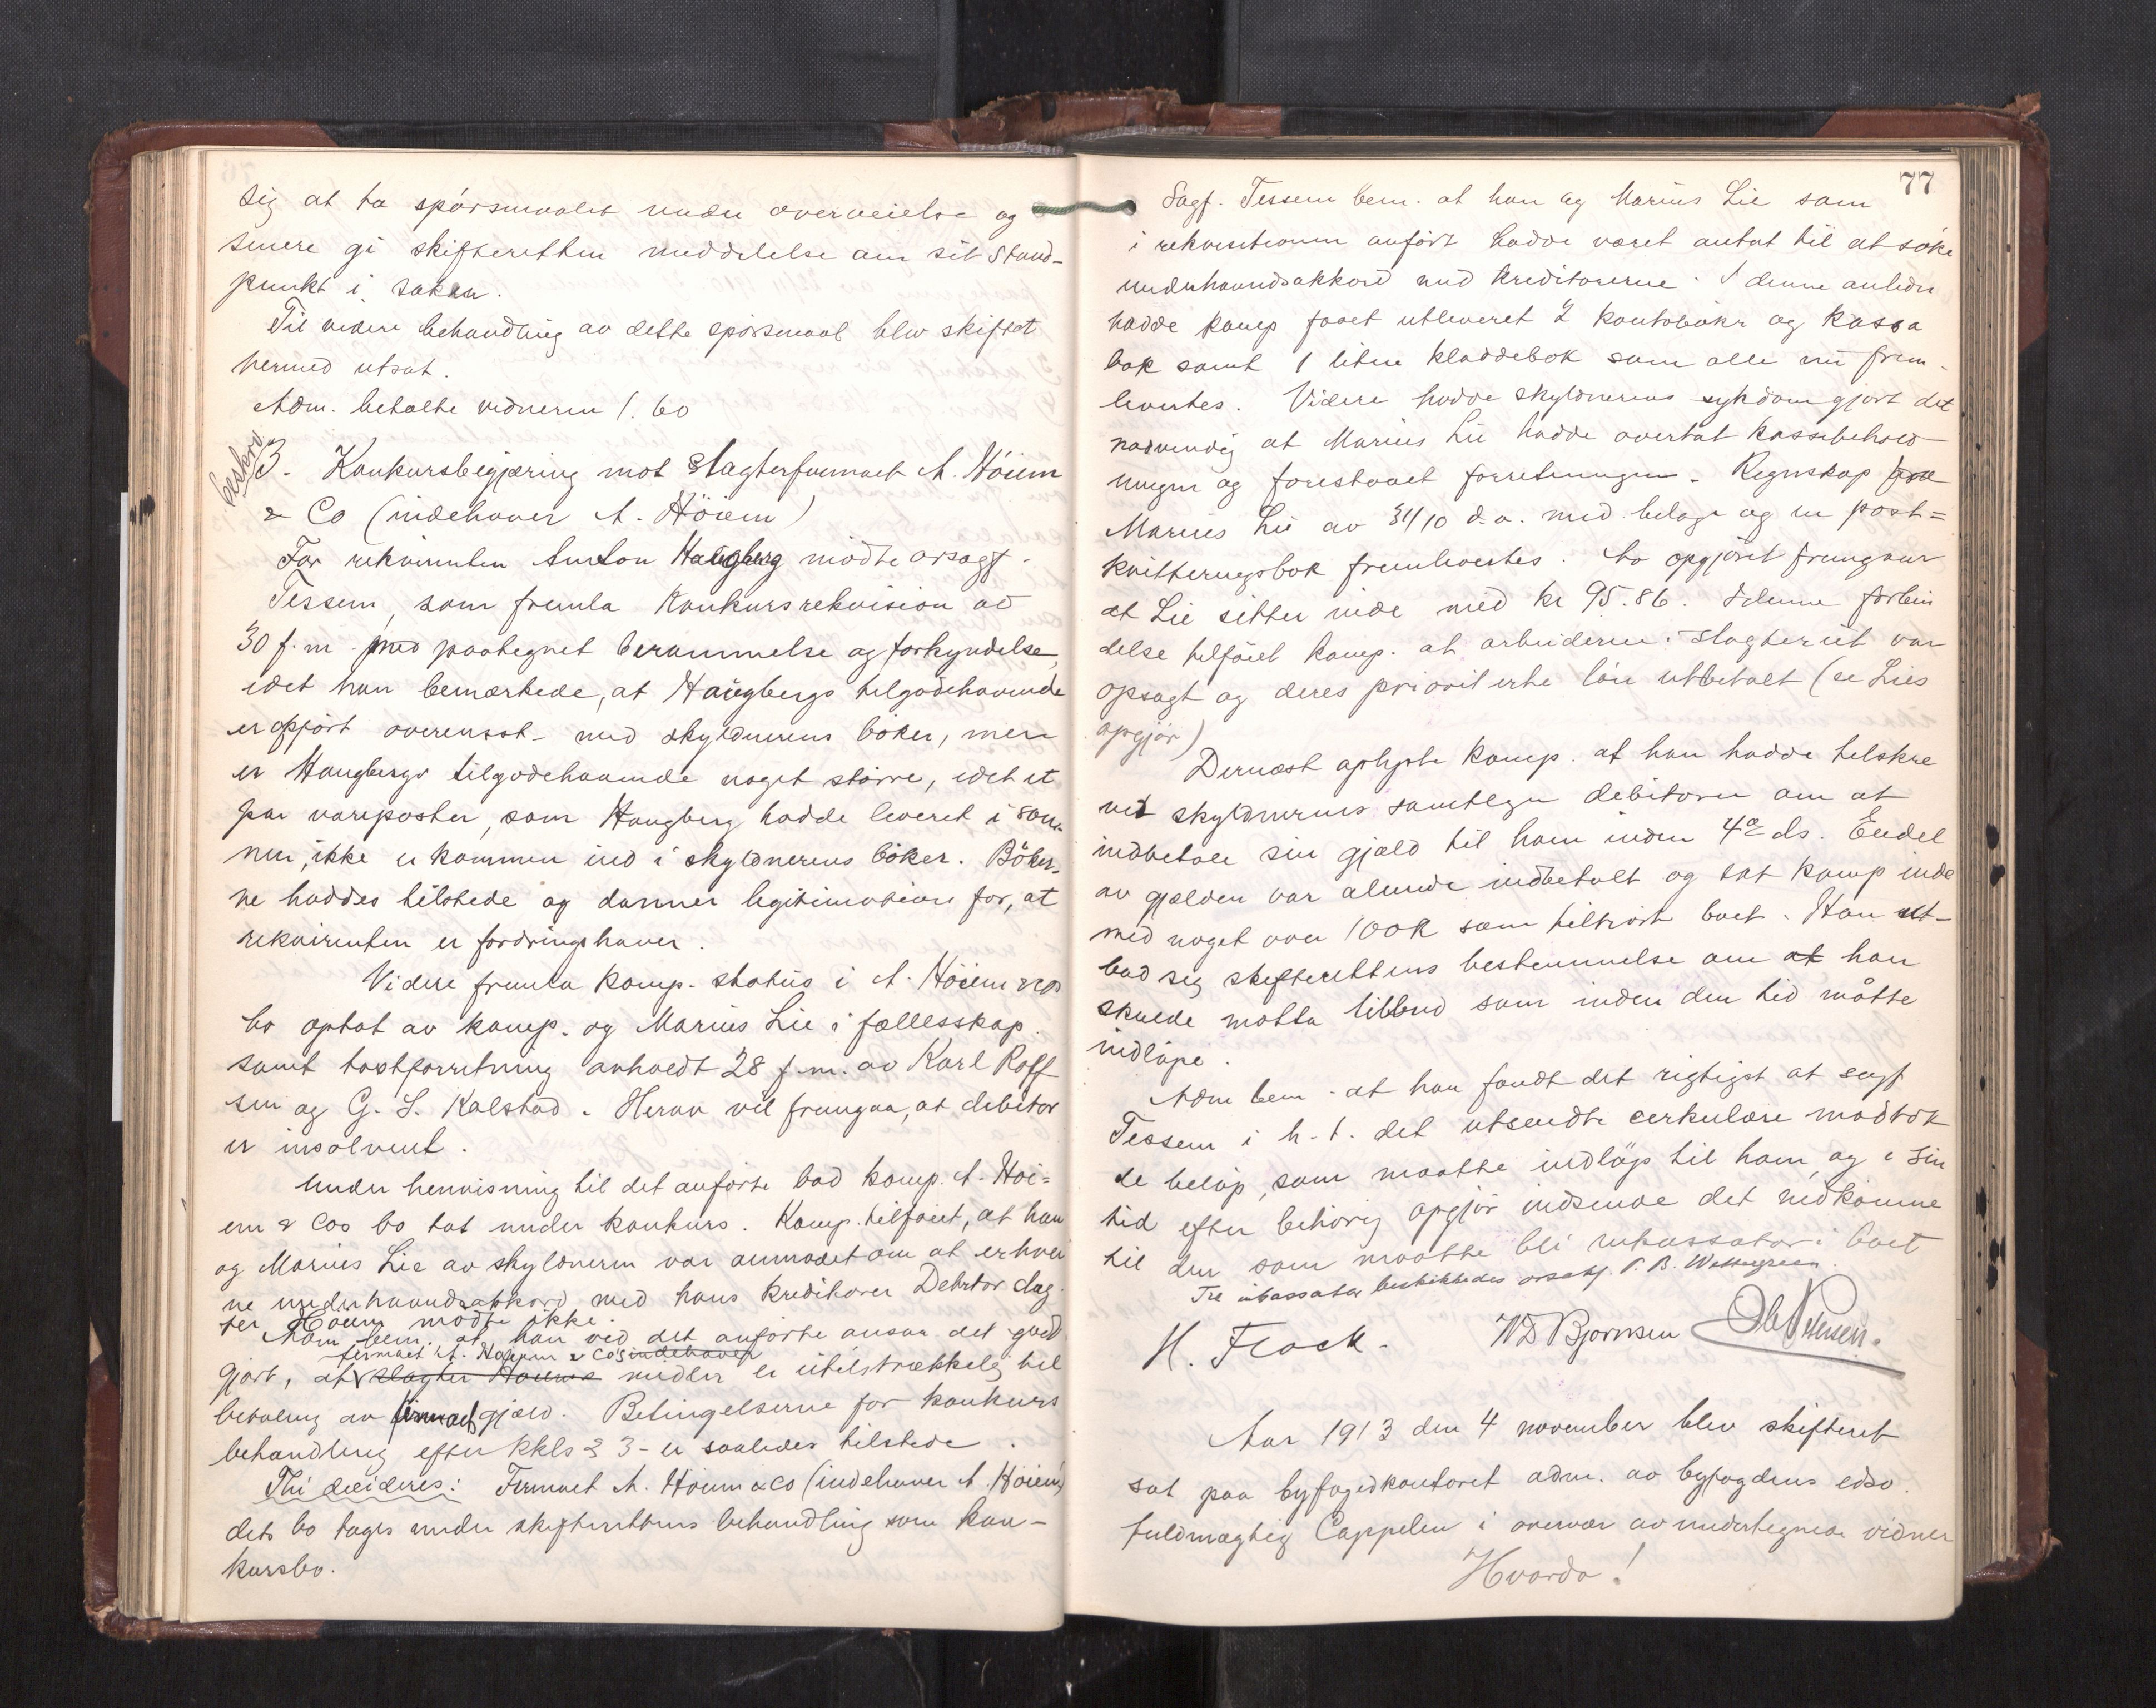 sig at ta spörsmaalet under overveielse og
senere gi skifteretten meddelelse om sit stand-
punkt i saken.
Til videre behandling av dette spörsmaal blev skiftet
hermed utsat.
Adm. betalte vidnerne 1.60
beskrev.
3. Konkursbegjæring mot slagterfirmaet A. Höiem
& Co (indehaver A. Höiem)
For rekvirenten Anton Haugberg mödte orsagf.
Tessem, som fremla konkursrekvisision av
30 f.m. med paategnet berammelse og forkyndelse,
idet han bemærkede, at Haugbergs tilgodehavende
er opfört overensst. med skyldnerens böker, men
er Haugbergs tilgodehavende noget större, idet et
par vareposter, som Haugberg hadde leveret i som-
mer, ikke er kommen ind i skyldnerens böker. Böker-
ne haddes tilstede og danner legitimation for, at
rekvirenten er fordringshaver.
Videre fremla komp. status i A. Höiem & Cos
bo optat av komp. og Marius Lie i fællesskap
samt takstforretning avholdt 28 f.m. av Karl Roff
sen og G. L. Kalstad. Herav vil fremgaa, at debitor
er insolvent.
Under henvisning til det anförte bad komp. A. Höi-
em & Cos bo tat under konkurs. Komp. tilföiet, at han
og Marius Lie av skyldneren var anmodet om at erhver
ve underhaandsakkord med hans kreditorer. Debitor slag
ter Höiem mödte ikke.
Adm. bem. at han ved det anförte ansaa det godt
firmaet A. Höiem & Co's indehaver
gjort, at slagter Höiems midler er utilstrækkelig til
betaling av firmaets gjæld. Betingelserne for konkurs
behandling efter kkls § 3 - er saaledes tilstede.
Thi decideres: Firmaet A. Höiem & Co (indehaver A. Höiem)
dets bo tages under skifterettens behandling som kon-
kursbo.
77
Sagf. Tessem bem. at han og Marius Lie som
i rekvisitionen anfört hadde været antat til at söke
underhaandsakkord med kreditorerne. I denne anledn
hadde komp faaet utleveret 2 kontoböker og kassa
bok samt 1 liten kladdebok som alle nu frem-
levertes. Videre hadde skyldnerens sykdom gjort det
nödvendig at Marius Lie hadde overtat kassebehold
ningen og forestaaet forretningen. Regnskap fra
Marius Lie av 31/10 d.a. med belage og en post-
kvitteringsbok fremlevertes. Av opgjöret fremgaar
at Lie sitter inde med kr 95.86. I denne forbin
delse tilföiet komp. at arbeiderne i slagteriet var
opsagt og deres prioriterte lön utbetalt (se Lies
opgjör)
Dernæst oplyste komp. at han hadde tilskre
vet skyldnerens samtlige debitorer om at
indbetale sin gjæld til ham inden 4de ds. Endel
av gjælden var allerede indbetalt og sat komp inde
med noget over 100 k som tilhört boet. Han ut-
bad sig skifterettens bestemmelse om at han
skulde motta tilbud som inden den tid måtte
indlöpe.
Adm bem. at han fandt det rigtigst at sagf
Tessem i h.t. det utsendte cirkulære modtok
de belöp, som maatte indlöpe til ham, og i sin
tid efter behörig opgjör indsende det indkomne
til den som maatte bli inkassator i boet
Til inkassator beskikkedes orsakf. P. B. Wettergreen.
H. Flock. W D Bjørnsen Ole Petersen.
Aar 1913 den 4 november blev skifteret
sat paa byfogedkontoret adm. av byfogdens edsv.
fuldmægtig Cappelen i overvær av undertegnede vidner
Hvorda!